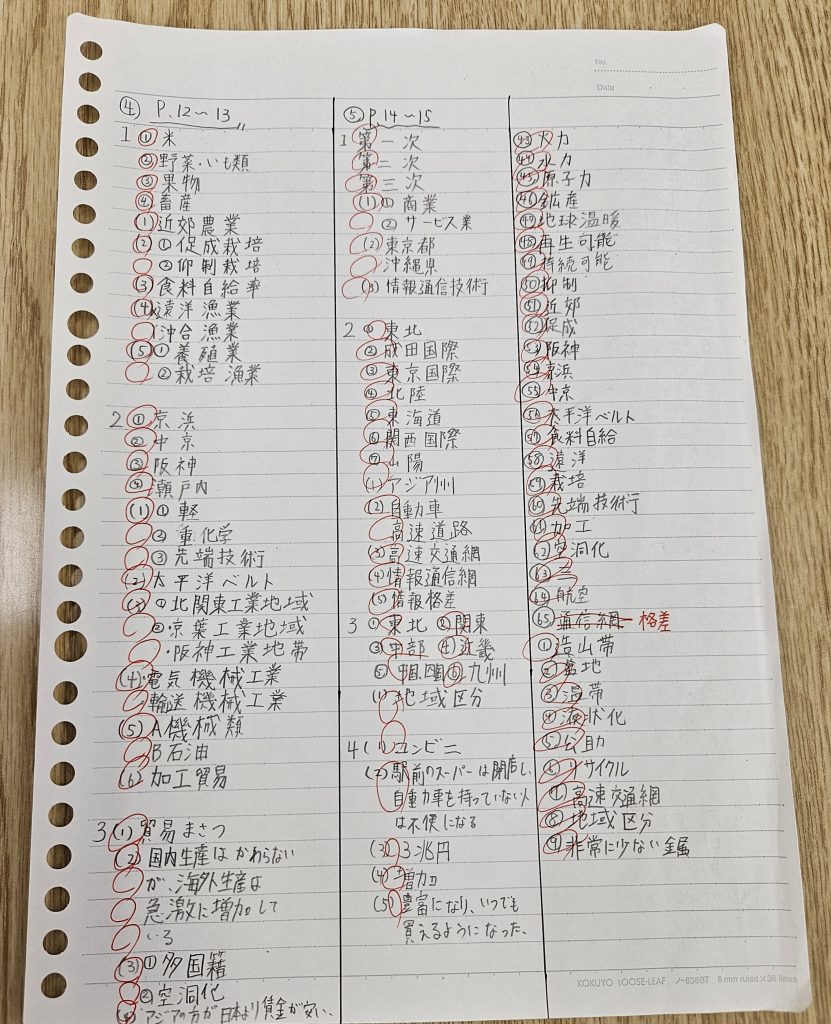 No.
Date
④ P.12〜13
1 ① 米
② 野菜・いも類
③ 果物
④ 畜産
(1) 近郊農業
(2) ① 促成栽培
② 抑制栽培
(3) 食料自給率
(4) 遠洋漁業
沖合漁業
(5) ① 養殖業
② 栽培漁業
2 ① 京浜
② 中京
③ 阪神
④ 瀬戸内
(1) ① 軽
② 重化学
③ 先端技術
(2) 太平洋ベルト
(3) ・北関東工業地域
・京葉工業地域
・阪神工業地帯
(4) ・電気機械工業
輸送機械工業
(5) A 機械類
B 石油
(6) 加工貿易
3 (1) 貿易まさつ
(2) 国内生産はかわらない
が、海外生産は
急激に増加して
いる
(3) ① 多国籍
② 空洞化
(4) アジアの方が日本より賃金が安い、
⑤ P.14〜15
1 第一次
第二次
第三次
(1) ① 商業
② サービス業
(2) 東京都
沖縄県
(3) 情報通信技術
2 ① 東北
② 成田国際
③ 東京国際
④ 北陸
⑤ 東海道
⑥ 関西国際
⑦ 山陽
(1) アジア州
(2) 自動車
高速道路
(3) 高速交通網
(4) 情報通信網
(5) 情報格差
3 ① 東北 ② 関東
③ 中部 ④ 近畿
⑤ 中国、四国 ⑥ 九州
(1) 地域区分
4 (1) コンビニ
(2) 駅前のスーパーは閉店し、
自動車を持っていない人
は不便になる
(3) 3兆円
(4) 増加
(5) 豊富になり、いつでも
買えるようになった。
㊸ 火力
㊹ 水力
㊺ 原子力
㊻ 鉱産
㊼ 地球温暖
㊽ 再生可能
㊾ 持続可能
㊿ 抑制
51 近郊
52 促成
53 阪神
54 京浜
55 中京
56 太平洋ベルト
57 食料自給
58 遠洋
59 栽培
60 先端技術
61 加工
62 空洞化
63 三
64 航空
65 通信網 格差
① 造山帯
② 盆地
③ 温帯
④ 液状化
⑤ 公助
⑥ リサイクル
⑦ 高速交通網
⑧ 地域区分
⑨ 非常に少ない金属
KOKUYO LOOSE-LEAF ノ-836BT 6mm ruled×36 lines